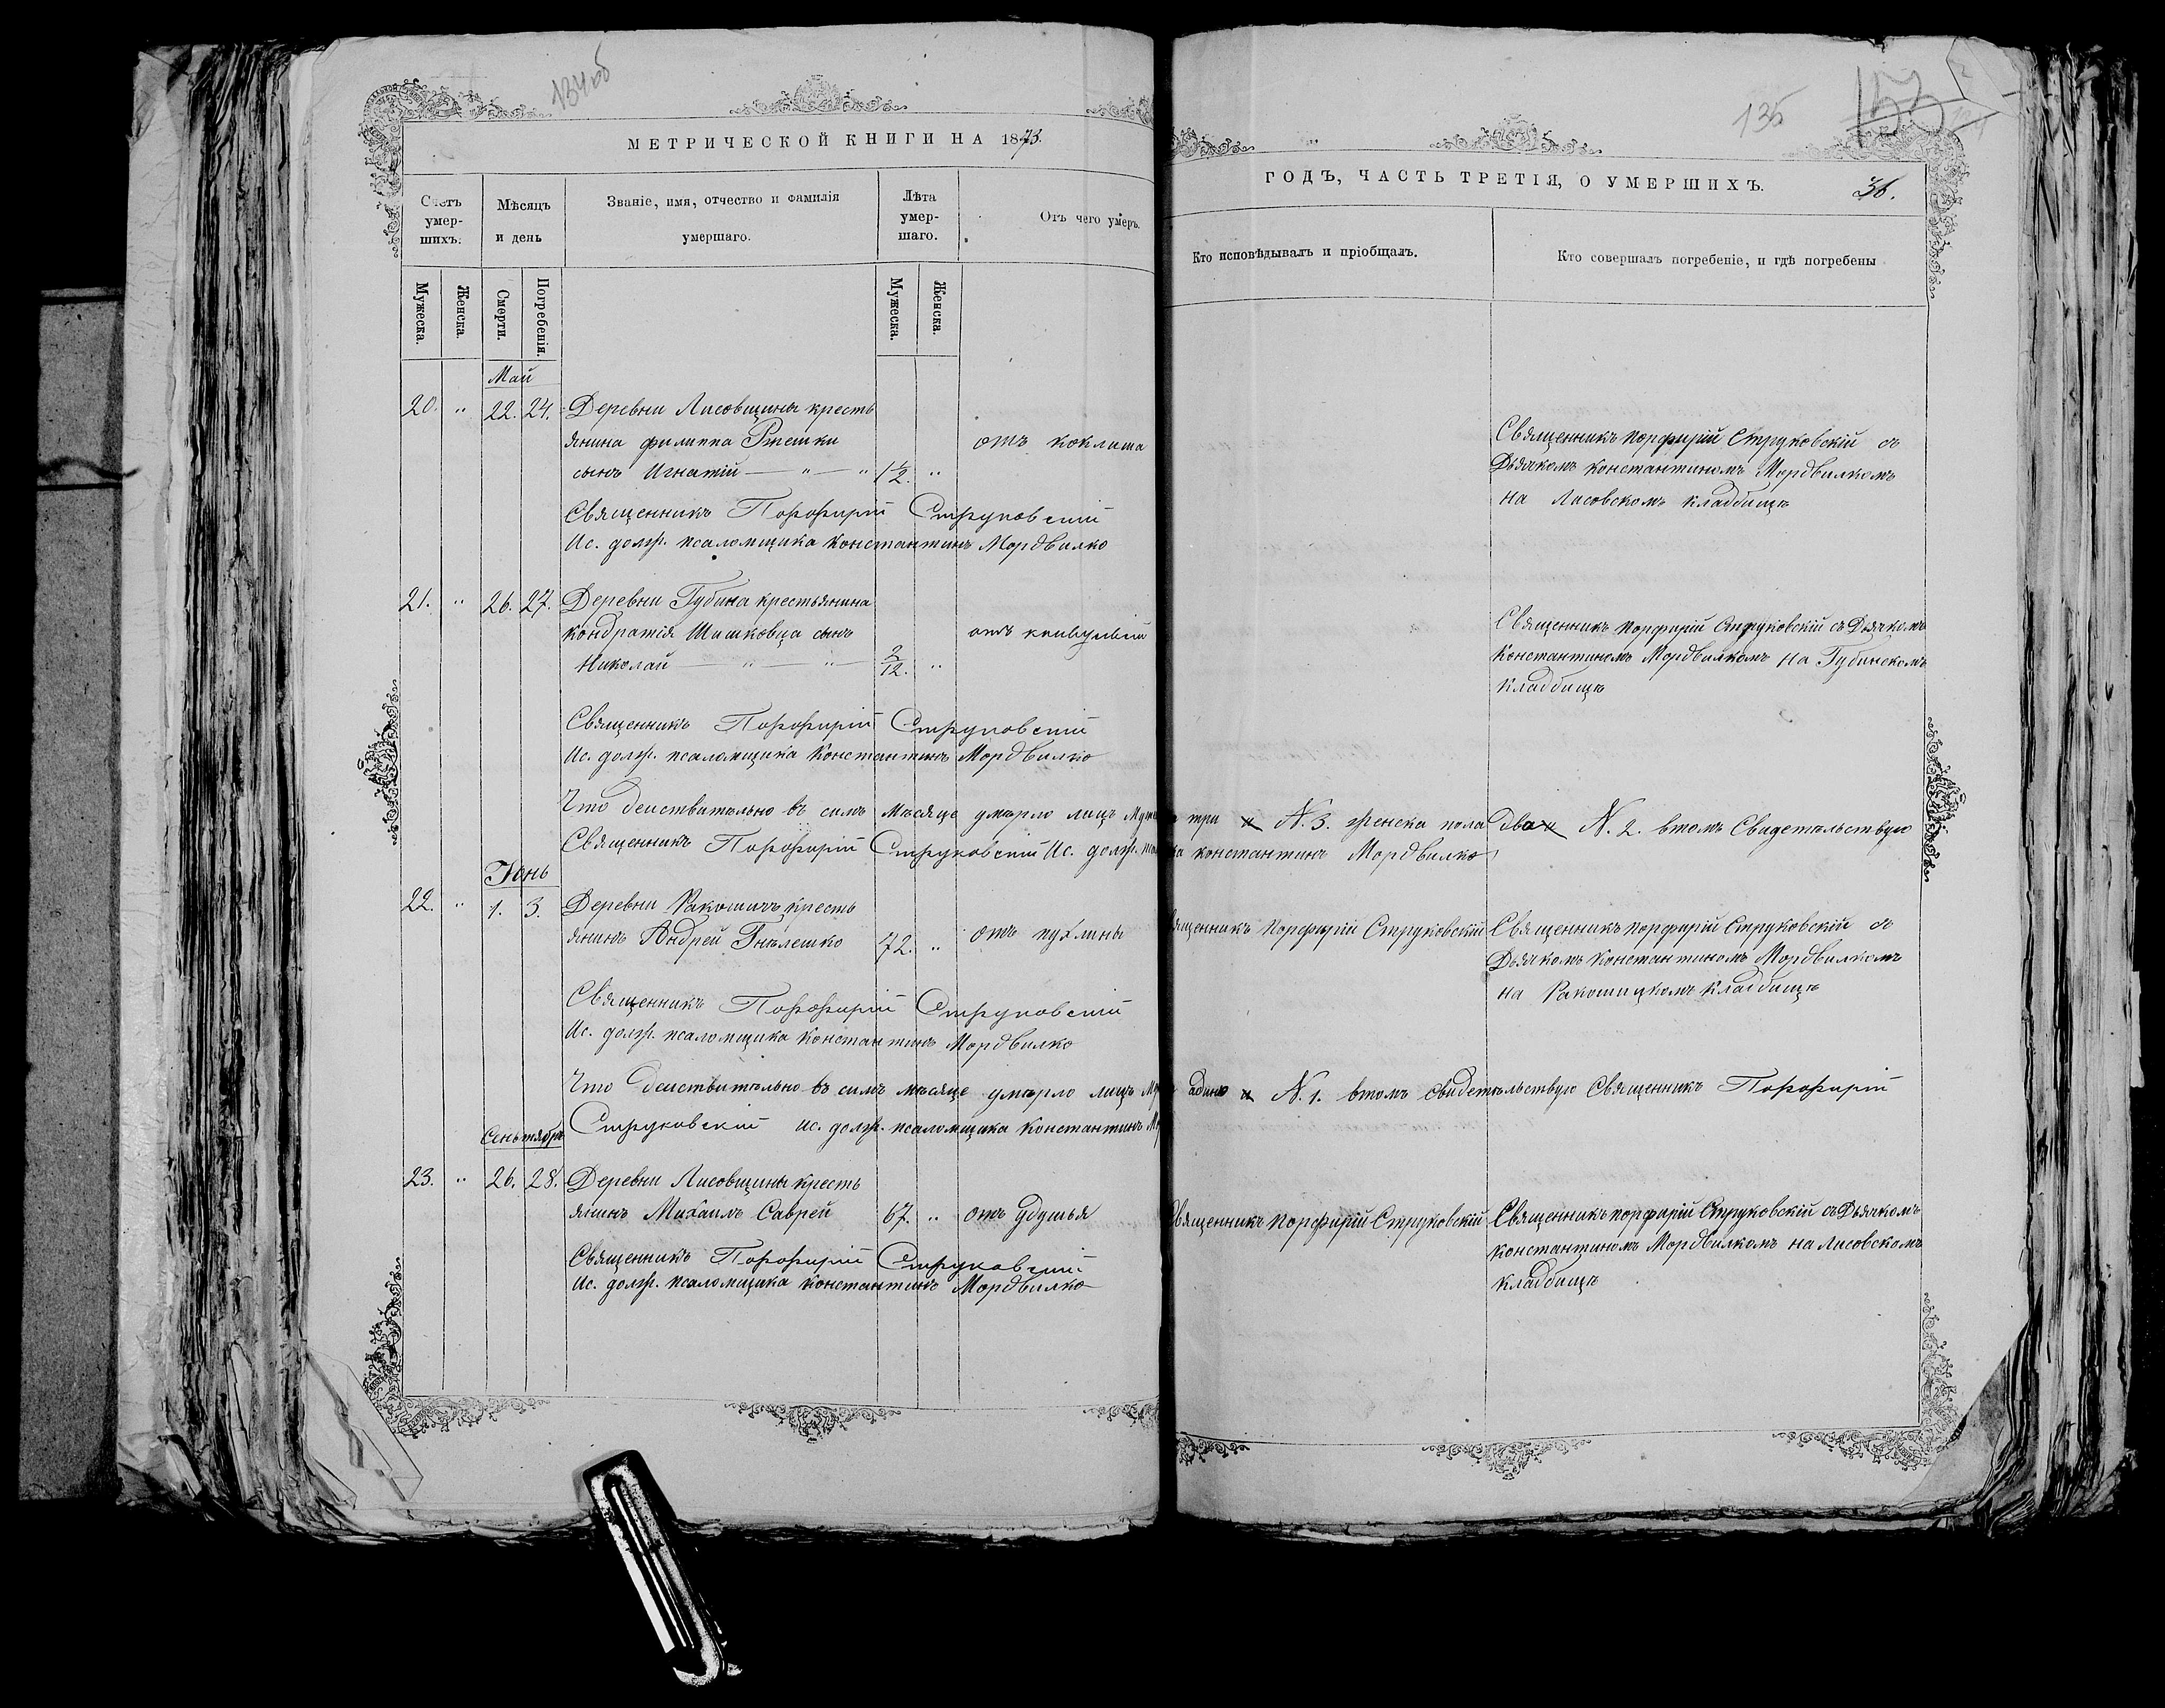 134об
135
МЕТРИЧЕСКОЙ КНИГИ НА 1873.
ГОДЪ, ЧАСТЬ ТРЕТІЯ, О УМЕРШИХЪ.
36.
Счетъ умер-шихъ.
Мѣсяцъ и день
Званіе, имя, отчество и фамилія умершаго.
Лѣта умер-шаго.
Отъ чего умеръ.
Кто исповѣдывалъ и пріобщалъ.
Кто совершалъ погребеніе, и гдѣ погребены
Мужеска.
Женска.
Смерти.
Погребенія.
Мужеска.
Женска.
Май
20. " 22. 24. Деревни Лисовщины кресть
янина филиппа отъ коклюша
сынъ Игнатій — " — " 1/2. "
Священникъ Порфирій Струковскій съ
Дьячкомъ Константиномъ Мордвилкомъ
на Лисовскомъ кладбищѣ
Священникъ Порфирій Струковскій
Ис. долж. псаломщика Константинъ Мордвилко
21. " 26. 27. Деревни Губина крестьянина
кондратія Шишковца сынъ отъ
Николай — " — " — 2/12. "
Священникъ Порфирій Струковскій съ Дьячкомъ
Константиномъ Мордвилкомъ на Губинскомъ
кладбищѣ
Священникъ Порфирій Струковскій
Ис. долж. псаломщика Константинъ Мордвилко
Что действительно въ семъ мѣсяце умерло лицъ три N. 3. женска пола два N. 2. втомъ Свидетельствую
Священникъ Порфирій Струковскій Ис. долж. константинъ Мордвилко
Іюнь
22. " 1. 3. Деревни Ракошичъ кресть
янинъ Андрей Гнѣлешко 72. " отъ пухлины
Священникъ Порфирій Струковскій
Священникъ Порфирій Струковскій съ
Дьячкомъ Константиномъ Мордвилкомъ
на Ракошицкомъ кладбищѣ
Священникъ Порфирій Струковскій
Ис. долж. псаломщика Константинъ Мордвилко
Что действительно въ семъ мѣсяце умерло лицъ адинъ N. 1. втомъ свидетельствую Священникъ Порфирій
Струковскій ис. долж. псаломщика Константинъ
Сентябрь
23. " 26. 28. Деревни Лисовщины кресть
янинъ Михаилъ Саврей 67. " отъ удушья
Священникъ Порфирій Струковскій
Священникъ порфирій Струковскій съ Дьячкомъ
константиномъ Мордвилкомъ на Лисовскомъ
кладбищѣ
Священникъ Порфирій Струковскій
Ис. долж. псаломщика константинъ Мордвилко